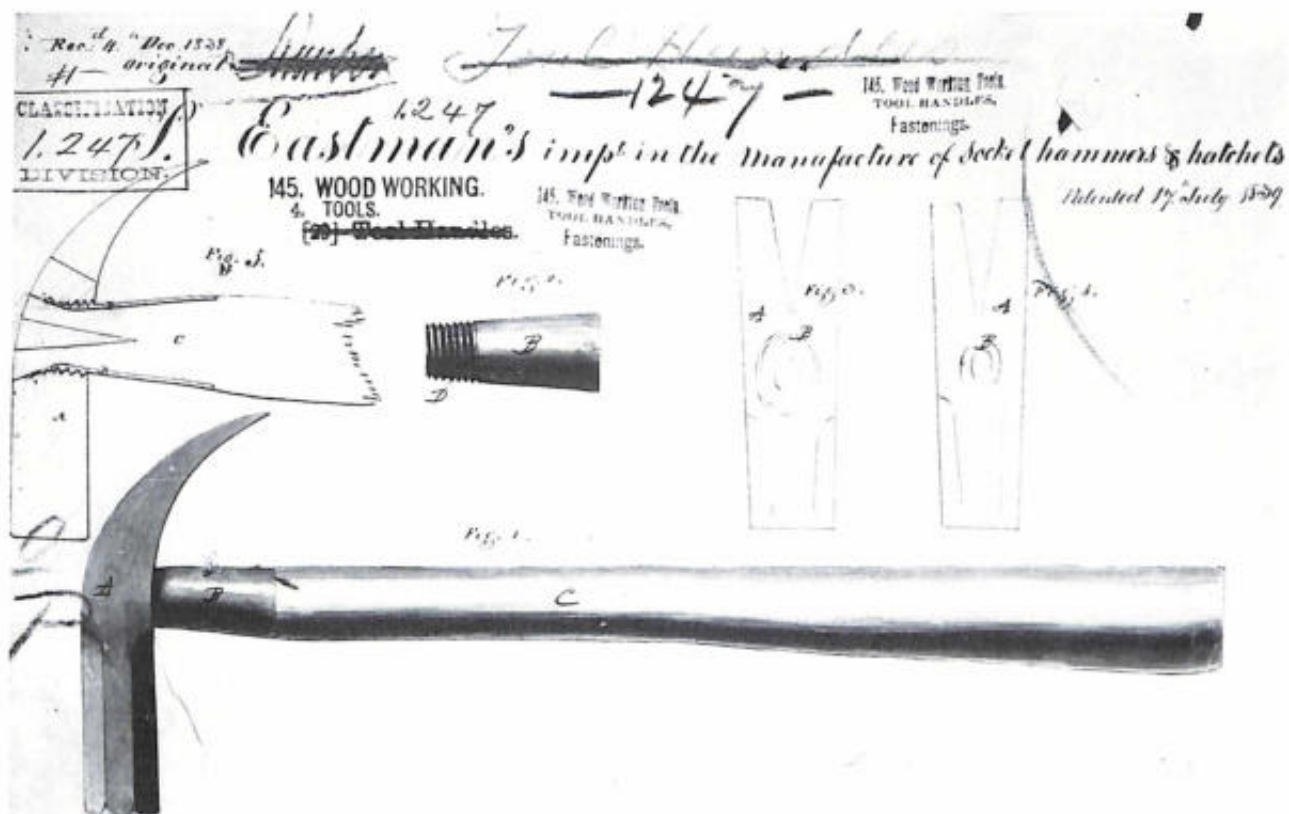 Rec.d 4.th Dec. 1838
original
Tool Handles
1247
1.247
145. Wood Working Tools.
TOOL HANDLES,
Fastenings.
CLASSIFICATION
1.247
DIVISION.
Eastman's impt. in the manufacture of Socket hammers & hatchets
Patented 17th July 1839
145. WOOD WORKING.
4. TOOLS.
[29] Tool Handles.
145. Wood Working Tools.
TOOL HANDLES,
Fastenings.
Fig. 5.
Fig. 2.
Fig. 3.
Fig. 4.
A
B
A
B
C
B
D
A
Fig. 1.
B
C